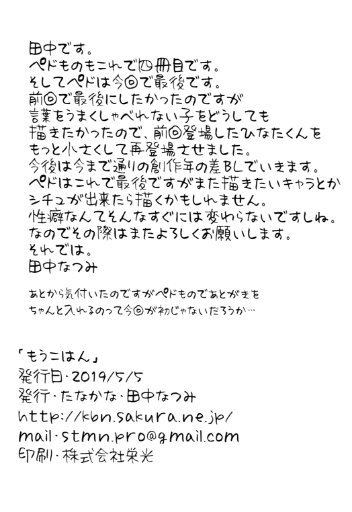 田中です。
ペドものもこれで四冊目です。
そしてペドは今回で最後です。
前回で最後にしたかったのですが
言葉をうまくしゃべれない子をどうしても
描きたかったので、前回登場したひなたくんを
もっと小さくして再登場させました。
今後は今まで通りの創作年の差BLでいきます。
ペドはこれで最後ですがまた描きたいキャラとか
シチュが出来たら描くかもしれません。
性癖なんてそんなすぐには変わらないですしね。
なのでその際はまたよろしくお願いします。
それでは。
田中なつみ
あとから気付いたのですがペドものであとがきを
ちゃんと入れるのって今回が初じゃないだろうか…
「もうこはん」
発行日・2019/5/5
発行・たなかな・田中なつみ
http://kbn.sakura.ne.jp/
mail・stmn.pro@gmail.com
印刷・株式会社栄光